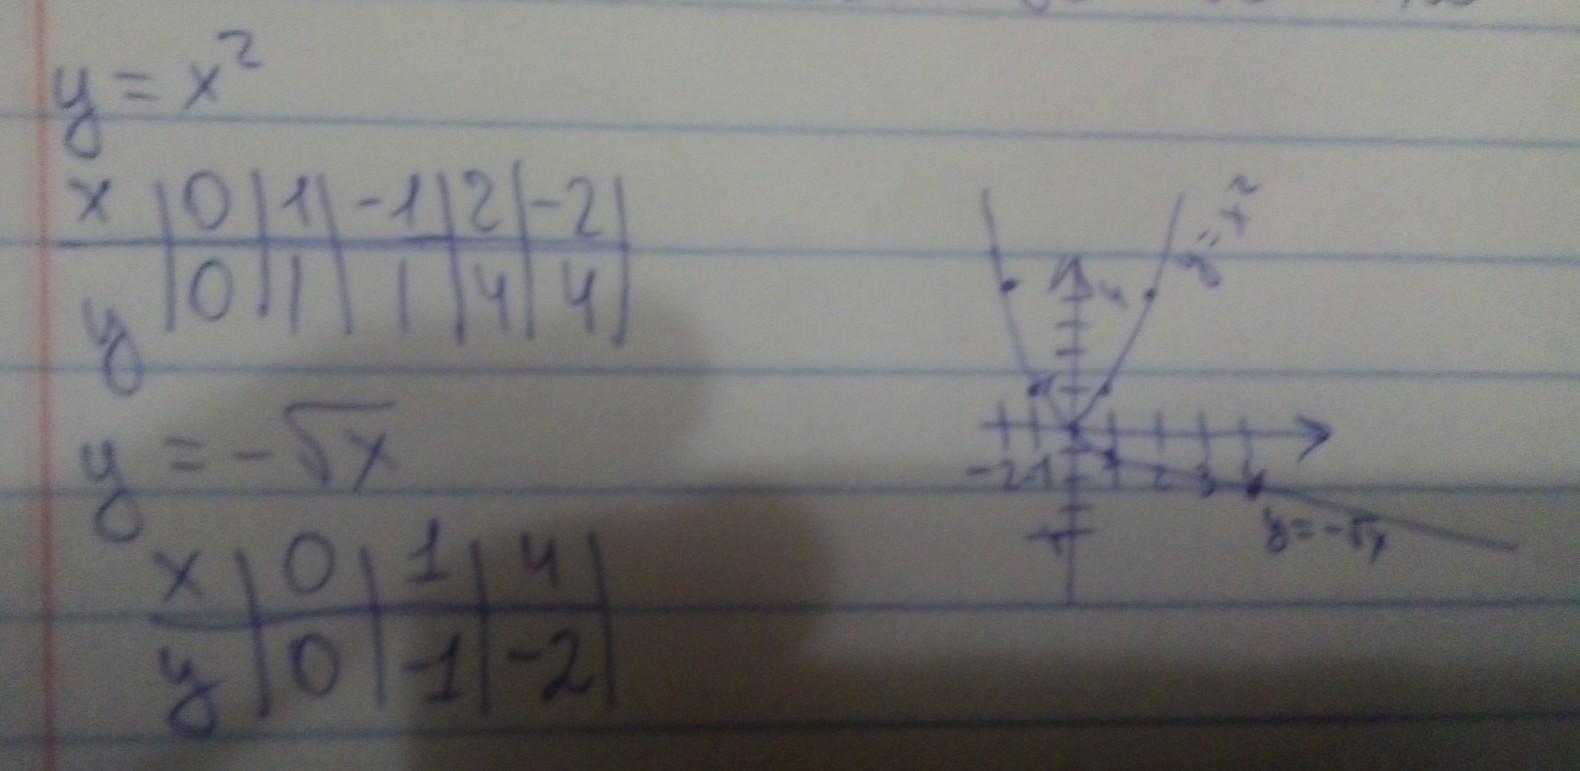 y = x²
x | 0 | 1 | -1 | 2 | -2 |
y | 0 | 1 | 1 | 4 | 4 |
y = -√x
x | 0 | 1 | 4 |
y | 0 | -1 | -2 |
y = x²
4
-2 -1 1 2 3 4
y = -√x